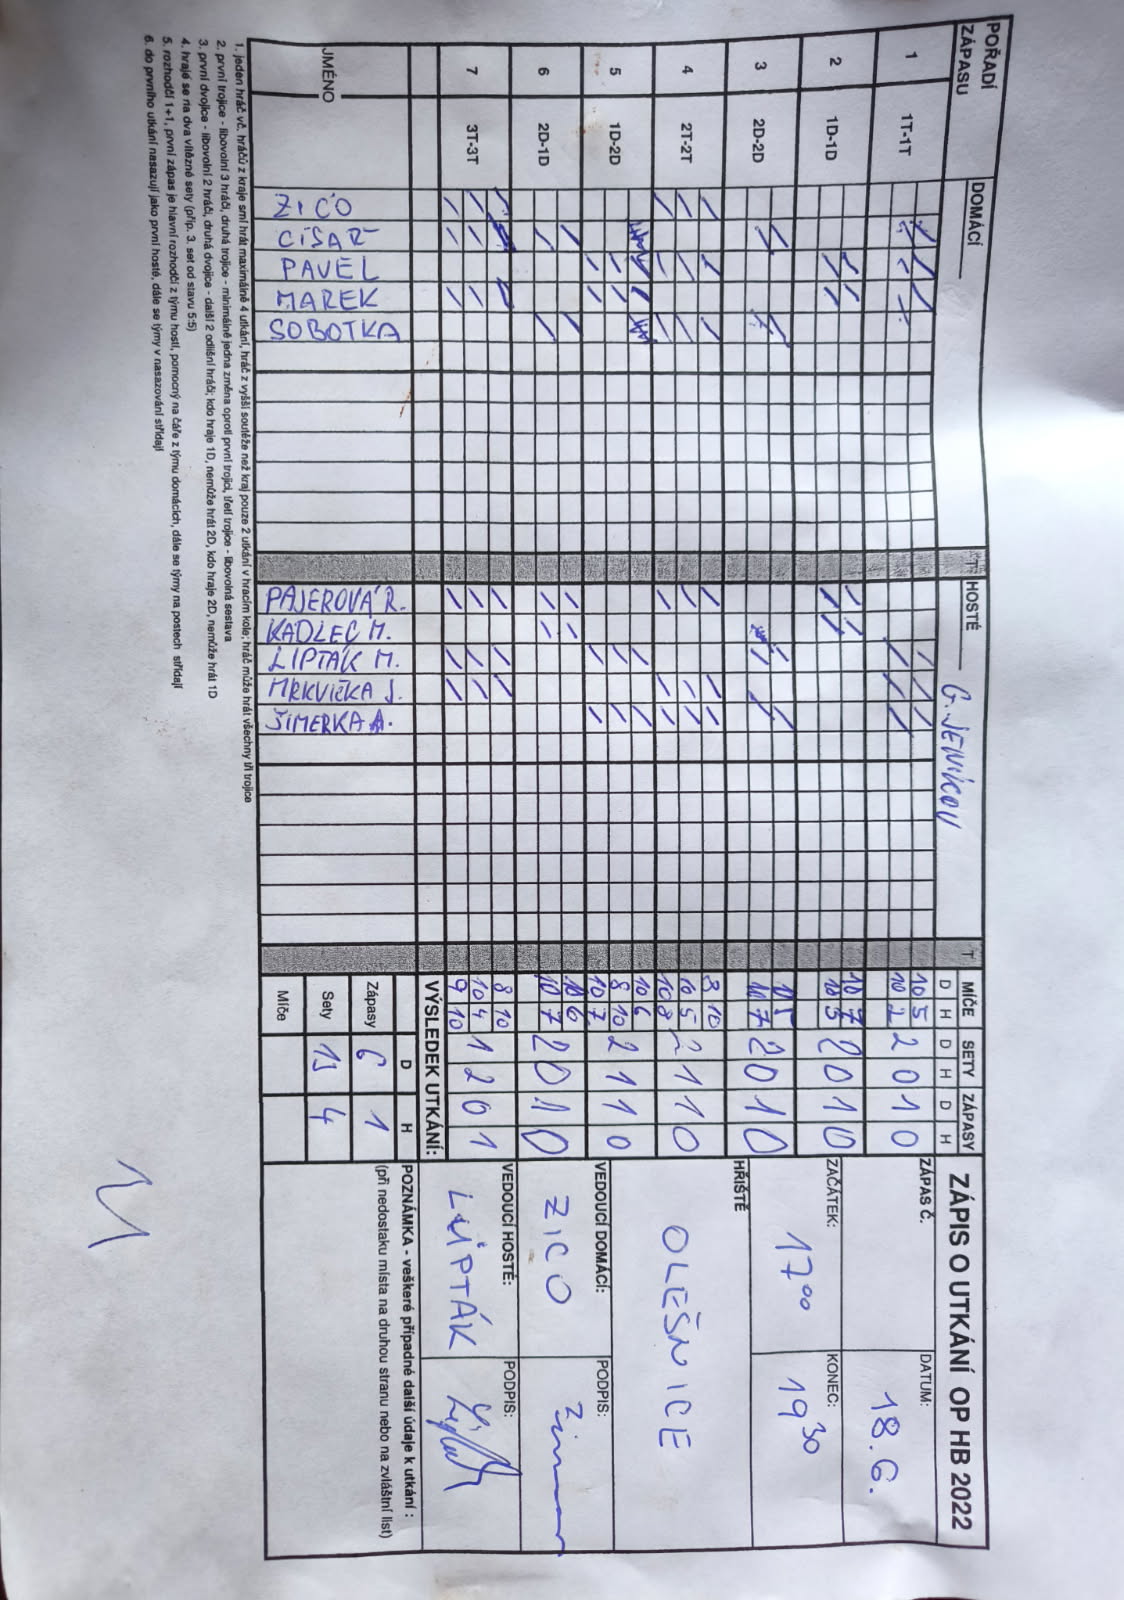 ZÁPIS O UTKÁNÍ OP HB 2022
ZÁPAS Č.
DATUM:
18.6.
ZAČÁTEK:
17⁰⁰
KONEC:
19³⁰
HŘIŠTĚ
OLEŠNICE
VEDOUCÍ DOMÁCÍ:
ZICO
PODPIS:
VEDOUCÍ HOSTÉ:
LIPTÁK
PODPIS:
POZNÁMKA - veškeré případné další údaje k utkání :
(při nedostaku místa na druhou stranu nebo na zvláštní list)
POŘADÍ ZÁPASU
DOMÁCÍ
T
HOSTÉ
G. JENÍKOV
T
MÍČE SETY ZÁPASY
D H D H D H
1 1T-1T
10 5
10 2
2 0 1 0
2 1D-1D
10 7
10 5
2 0 1 0
3 2D-2D
10 5
10 7
2 0 1 0
4 2T-2T
8 10
10 5
10 8
2 1 1 0
5 1D-2D
10 6
8 10
10 7
2 1 1 0
6 2D-1D
10 6
10 7
2 0 1 0
7 3T-3T
8 10
10 4
9 10
1 2 0 1
JMÉNO
ZICO
CÍSAŘ
PAVEL
MAREK
SOBOTKA
PAJEROVÁ R.
KADLEC M.
LIPTÁK M.
MRKVIČKA J.
ŠIMERKA A.
VÝSLEDEK UTKÁNÍ:
D H
Zápasy 6 1
Sety 13 4
Míče
1. jeden hráč vč. hráčů z kraje smí hrát maximálně 4 utkání, hráč z vyšší soutěže než kraj pouze 2 utkání v hracím kole; hráč může hrát všechny tři trojice
2. první trojice - libovolní 3 hráči, druhá trojice - minimálně jedna změna oproti první trojici, třetí trojice - libovolná sestava
3. první dvojice - libovolní 2 hráči, druhá dvojice - další 2 odlišní hráči; kdo hraje 1D, nemůže hrát 2D, kdo hraje 2D, nemůže hrát 1D
4. hraje se na dva vítězné sety (příp. 3. set od stavu 5:5)
5. rozhodčí 1+1, první zápas je hlavní rozhodčí z týmu hostí, pomocný na čáře z týmu domácích, dále se týmy na postech střídají
6. do prvního utkání nasazují jako první hosté, dále se týmy v nasazování střídají